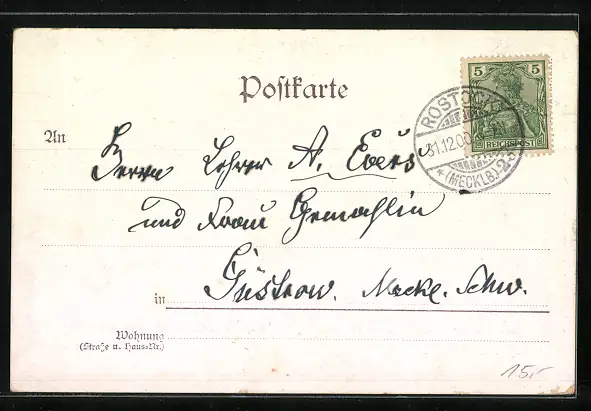 Postkarte
5 5
REICHSPOST
ROSTOCK
31.12.00
*(MECKLB)2*
An Herrn Lehrer A. Evers
und Frau Gemahlin
in Güstrow. Meckl. Schw.
Wohnung
(Straße u. Haus-Nr.)
15,-